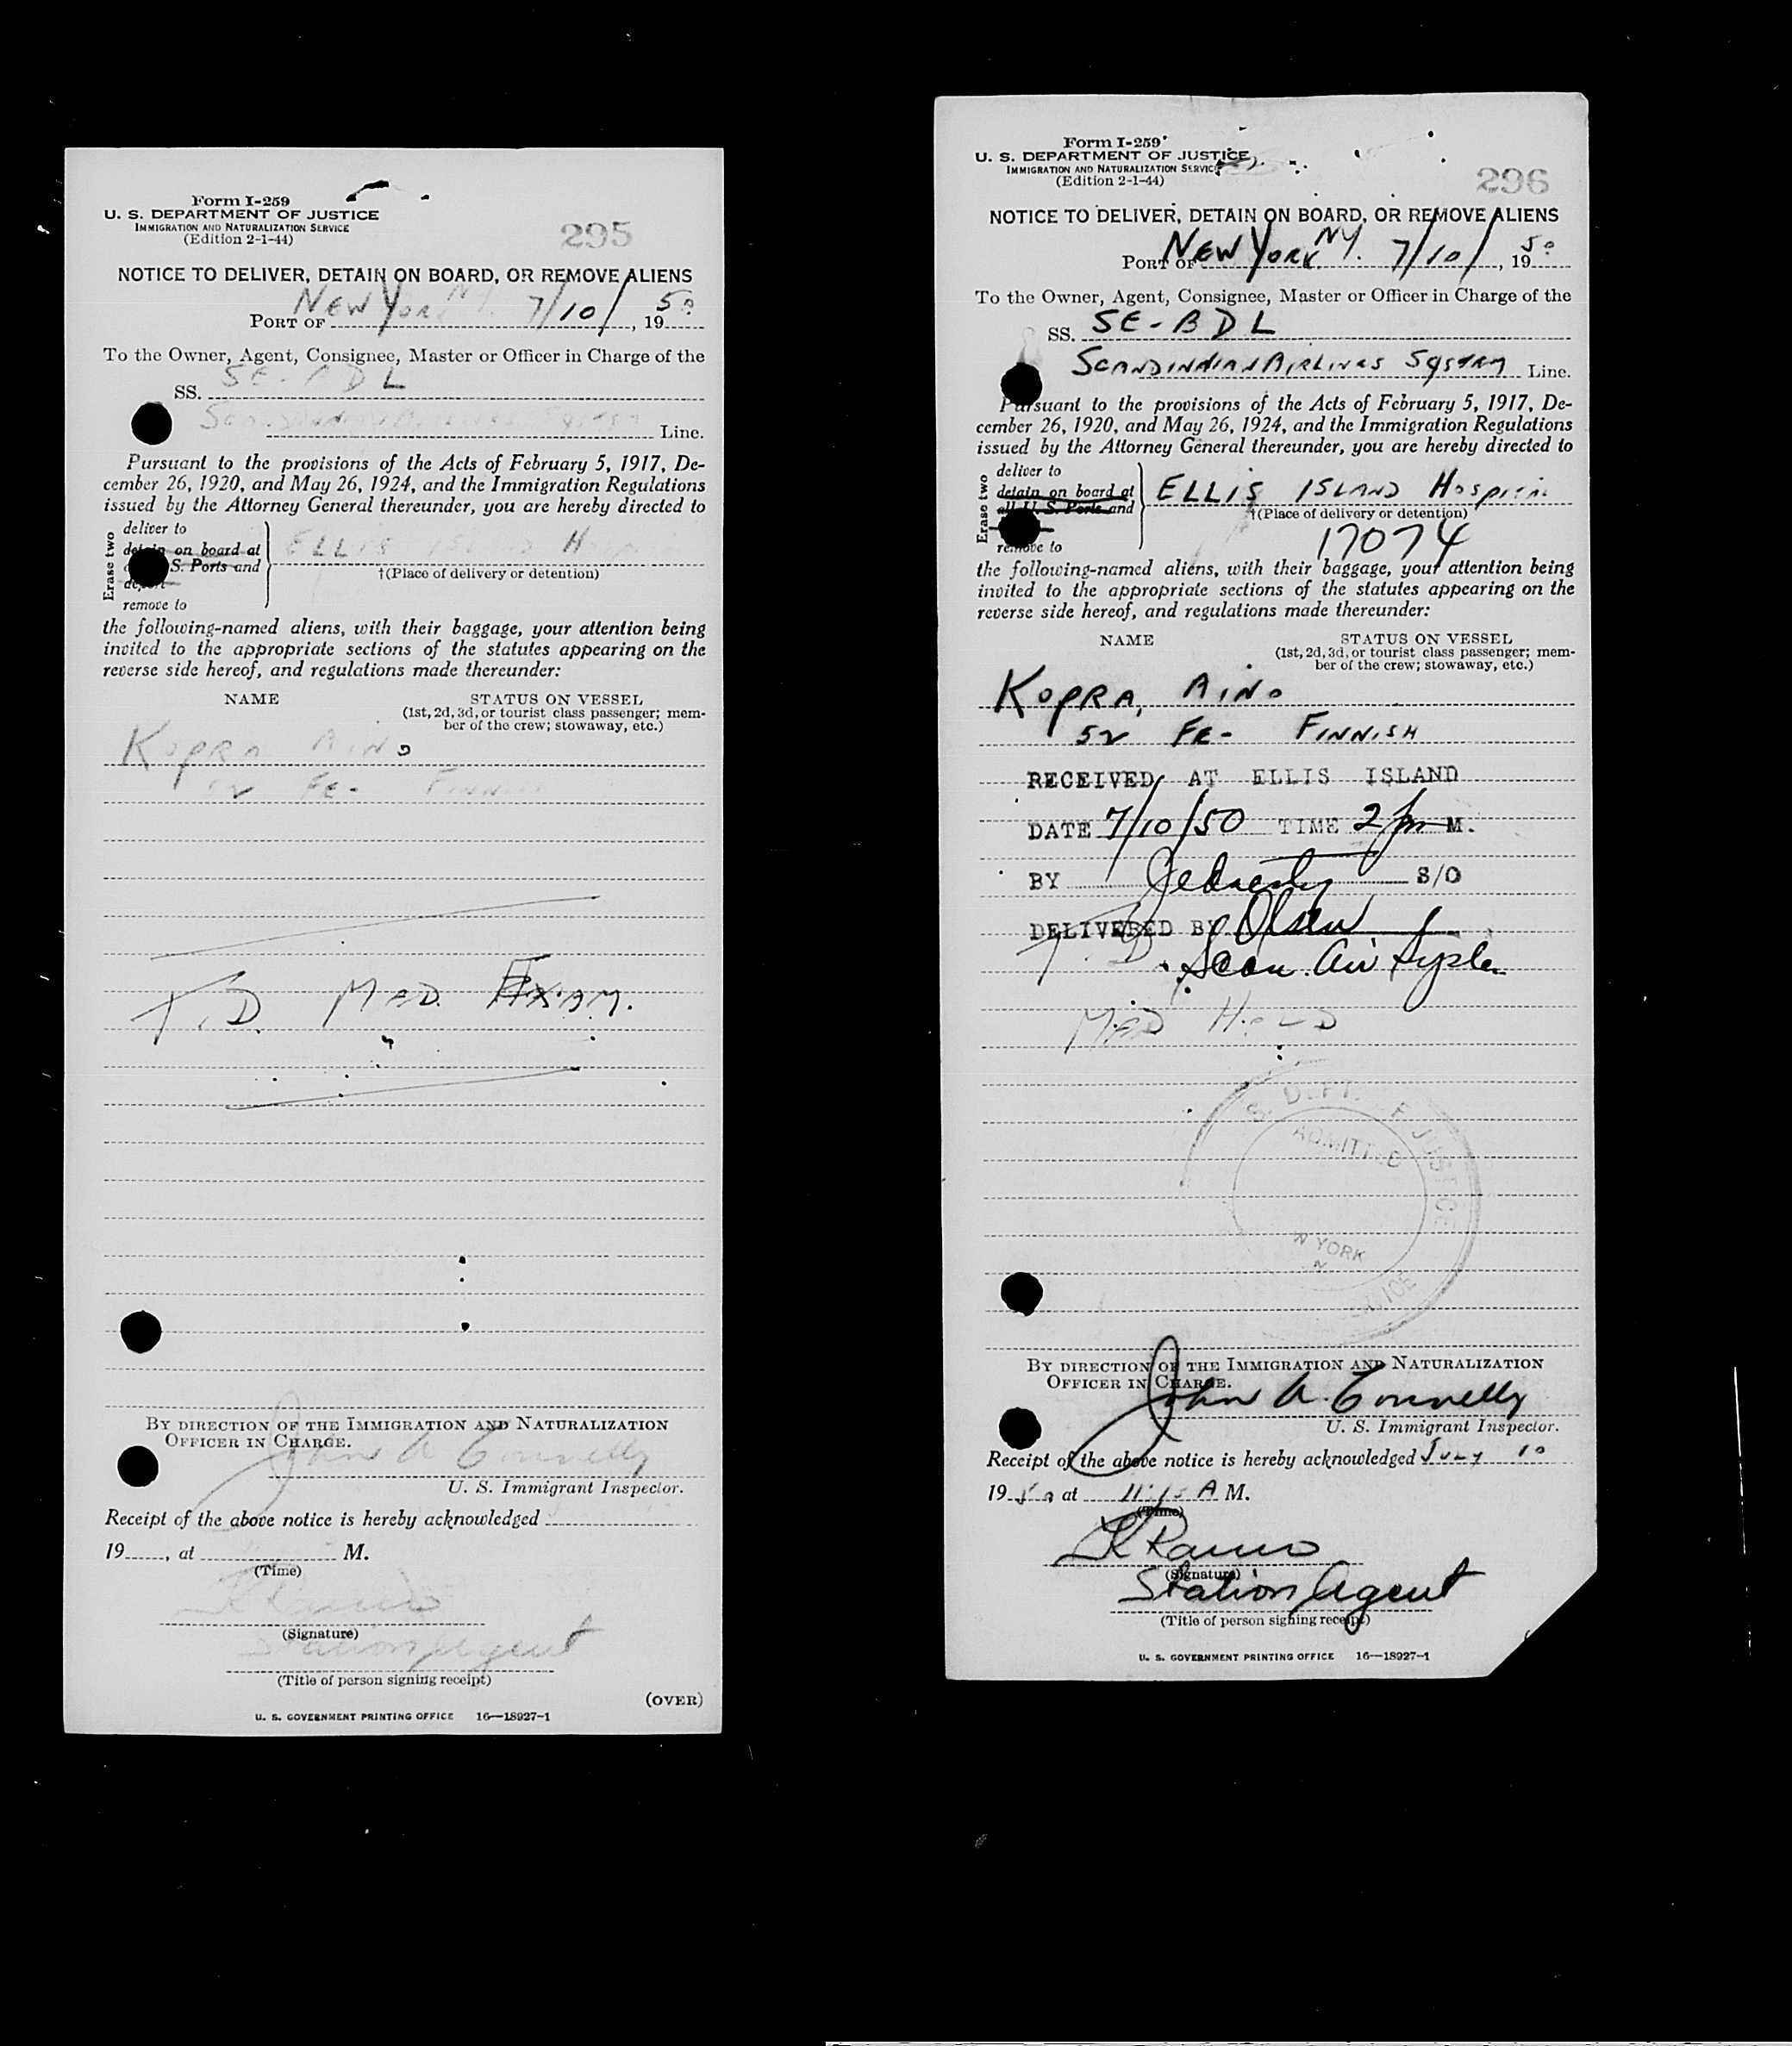 Form I-259
U. S. DEPARTMENT OF JUSTICE
IMMIGRATION AND NATURALIZATION SERVICE
(Edition 2-1-44)
295
NOTICE TO DELIVER, DETAIN ON BOARD, OR REMOVE ALIENS
PORT OF New York N.Y. 7/10/, 1950
To the Owner, Agent, Consignee, Master or Officer in Charge of the
SS. SE-BDL
Line.
Pursuant to the provisions of the Acts of February 5, 1917, De-
cember 26, 1920, and May 26, 1924, and the Immigration Regulations
issued by the Attorney General thereunder, you are hereby directed to
Erase two
deliver to
detain on board at
S. Ports and
remove to
ELLIS ISLAND
†(Place of delivery or detention)
the following-named aliens, with their baggage, your attention being
invited to the appropriate sections of the statutes appearing on the
reverse side hereof, and regulations made thereunder:
NAME
STATUS ON VESSEL
(1st, 2d, 3d, or tourist class passenger; mem-
ber of the crew; stowaway, etc.)
KOPRA AINO
52 FE- FINNISH
T.D. MED. EXAM.
BY DIRECTION OF THE IMMIGRATION AND NATURALIZATION
OFFICER IN CHARGE.
John A Connelly
U. S. Immigrant Inspector.
Receipt of the above notice is hereby acknowledged
19____, at ____ M.
(Time)
(Signature)
Station Agent
(Title of person signing receipt)
(OVER)
U. S. GOVERNMENT PRINTING OFFICE 16—18927-1
Form I-259
U. S. DEPARTMENT OF JUSTICE
IMMIGRATION AND NATURALIZATION SERVICE
(Edition 2-1-44)
296
NOTICE TO DELIVER, DETAIN ON BOARD, OR REMOVE ALIENS
PORT OF NEW YORK N.Y. 7/10/, 1950
To the Owner, Agent, Consignee, Master or Officer in Charge of the
SS. SE-BDL
SCANDINAVIAN AIRLINES SYSTEM Line.
Pursuant to the provisions of the Acts of February 5, 1917, De-
cember 26, 1920, and May 26, 1924, and the Immigration Regulations
issued by the Attorney General thereunder, you are hereby directed to
Erase two
deliver to
detain on board at
all U. S. Ports and
remove to
ELLIS ISLAND HOSPITAL
†(Place of delivery or detention)
17074
the following-named aliens, with their baggage, your attention being
invited to the appropriate sections of the statutes appearing on the
reverse side hereof, and regulations made thereunder:
NAME
STATUS ON VESSEL
(1st, 2d, 3d, or tourist class passenger; mem-
ber of the crew; stowaway, etc.)
KOPRA, AINO
52 FE- FINNISH
RECEIVED AT ELLIS ISLAND
DATE 7/10/50 TIME 2 pm M.
BY S/O
DELIVERED BY Olsen
T.D. Scan. Air System
MED HOLD
DEPT. OF JUSTICE
ADMITTED
YORK
BY DIRECTION OF THE IMMIGRATION AND NATURALIZATION
OFFICER IN CHARGE.
John A. Connelly
U. S. Immigrant Inspector.
Receipt of the above notice is hereby acknowledged July 10
1950 at 11:15 A M.
(Time)
(Signature)
Station Agent
(Title of person signing receipt)
U. S. GOVERNMENT PRINTING OFFICE 16—18927-1